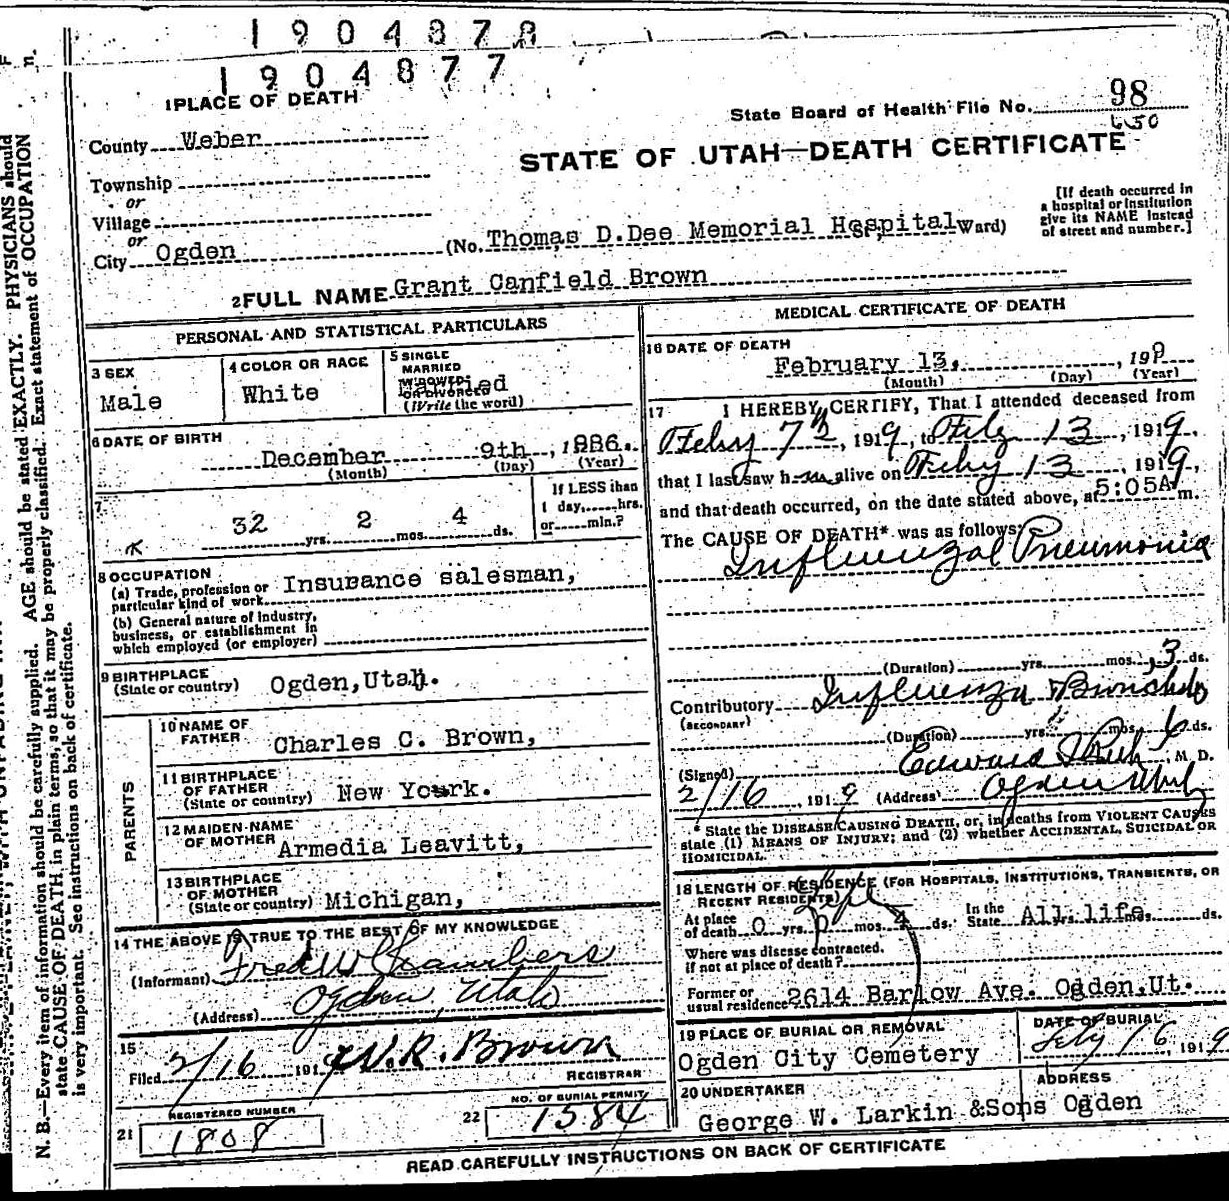 1904878
1904877
1 PLACE OF DEATH
State Board of Health File No. 98
County Weber
STATE OF UTAH—DEATH CERTIFICATE
Township
or
Village
or
City Ogden (No. Thomas D.Dee Memorial Hospital Ward)
[If death occurred in
a hospital or institution
give its NAME instead
of street and number.]
2 FULL NAME Grant Canfield Brown
PERSONAL AND STATISTICAL PARTICULARS
3 SEX
Male
4 COLOR OR RACE
White
5 SINGLE
MARRIED
WIDOWED
OR DIVORCED
Married
(Write the word)
6 DATE OF BIRTH
December 9th, 1886.
(Month) (Day) (Year)
7
32 yrs. 2 mos. 4 ds.
If LESS than
1 day,......hrs.
or......min.?
8 OCCUPATION
(a) Trade, profession or
particular kind of work Insurance salesman,
(b) General nature of industry,
business, or establishment in
which employed (or employer)
9 BIRTHPLACE
(State or country) Ogden,Utah.
PARENTS
10 NAME OF
FATHER Charles C. Brown,
11 BIRTHPLACE
OF FATHER
(State or country) New York.
12 MAIDEN NAME
OF MOTHER Armedia Leavitt,
13 BIRTHPLACE
OF MOTHER
(State or country) Michigan,
14 THE ABOVE IS TRUE TO THE BEST OF MY KNOWLEDGE
(Informant) Fred W Chambers
(Address) Ogden, Utah
15
Filed 2/16 1919 W.R. Brown
REGISTRAR
REGISTERED NUMBER
21 1808
NO. OF BURIAL PERMIT
22 1584
MEDICAL CERTIFICATE OF DEATH
16 DATE OF DEATH
February 13, 1919
(Month) (Day) (Year)
17 I HEREBY CERTIFY, That I attended deceased from
Feby 7th, 1919, to Feby 13, 1919
that I last saw him alive on Feby 13, 1919
and that death occurred, on the date stated above, at 5:05A m.
The CAUSE OF DEATH* was as follows:
Influenzal Pneumonia
(Duration) yrs. mos. 3 ds.
Contributory Influenza &
(SECONDARY)
(Duration) yrs. mos. 6 ds.
(Signed) Edward I Rich, M. D.
2/16, 1919 (Address) Ogden Utah
* State the DISEASE CAUSING DEATH, or, in deaths from VIOLENT CAUSES
state (1) MEANS OF INJURY; and (2) whether ACCIDENTAL, SUICIDAL OR
HOMICIDAL.
18 LENGTH OF RESIDENCE (FOR HOSPITALS, INSTITUTIONS, TRANSIENTS, OR
RECENT RESIDENTS)
At place
of death 0 yrs. 0 mos. 4 ds. In the
State All life. ds.
Where was disease contracted.
if not at place of death?
Former or
usual residence 2614 Barlow Ave. Ogden,Ut.
19 PLACE OF BURIAL OR REMOVAL
Ogden City Cemetery
DATE OF BURIAL
Feby 16, 1919
20 UNDERTAKER
George W. Larkin &Sons
ADDRESS
Ogden
READ CAREFULLY INSTRUCTIONS ON BACK OF CERTIFICATE
N. B.—Every item of information should be carefully supplied. AGE should be stated EXACTLY. PHYSICIANS should
state CAUSE OF DEATH in plain terms, so that it may be properly classified. Exact statement of OCCUPATION
is very important. See instructions on back of certificate.